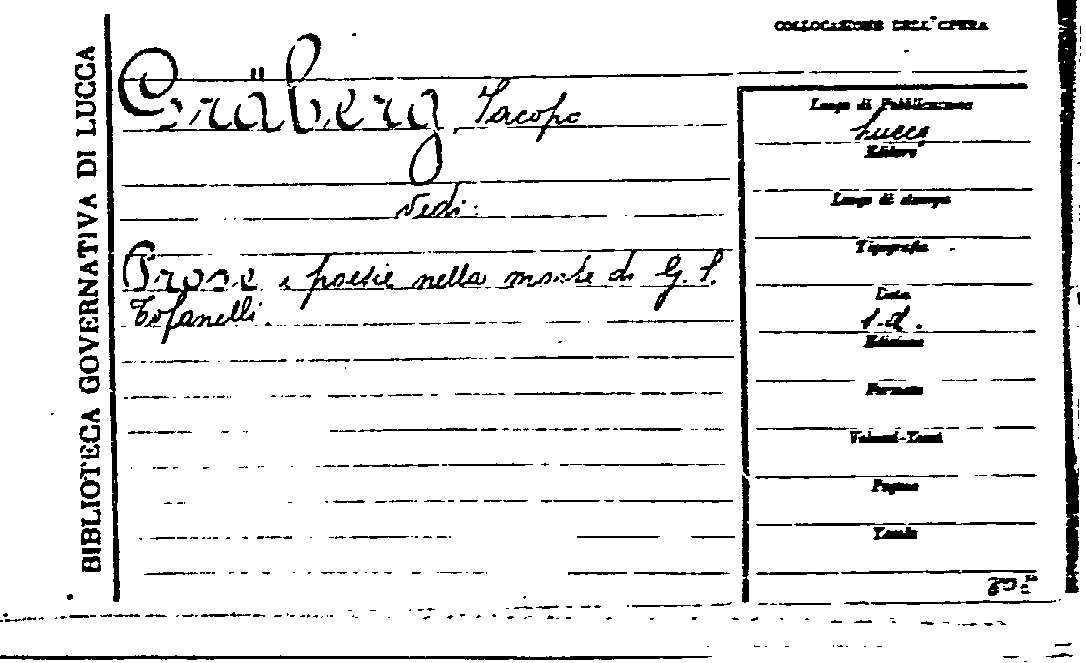 BIBLIOTECA GOVERNATIVA DI LUCCA
COLLOCAZIONE DELL'OPERA
Gräberg, Jacopo
Vedi:
Prose e poesie nella morte di G. S.
Tofanelli.
Luogo di Pubblicazione
Lucca
Editore
Luogo di stampa
Tipografia
Data
s.d.
Edizione
Formato
Volumi-Tomi
Pagine
Tavole